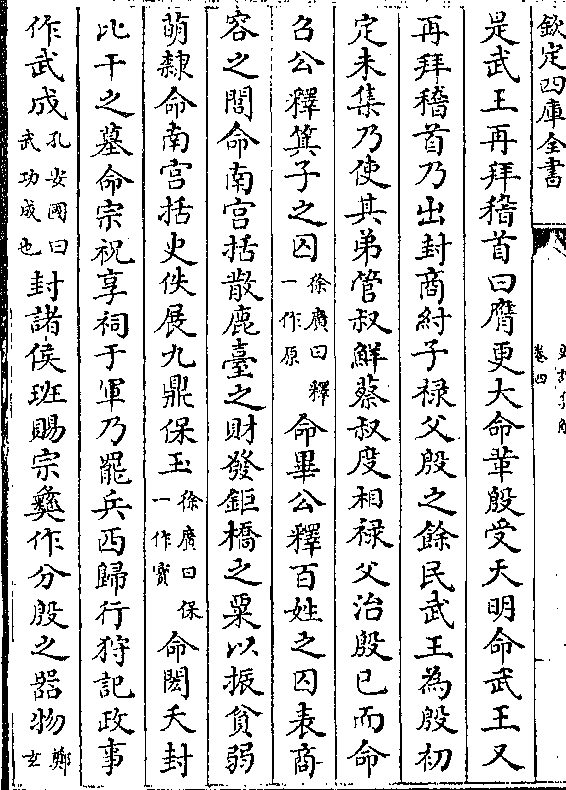 欽定四庫全書
卷四
是武王再拜稽首曰膺更大命革殷受天明命武王又
再拜稽首乃出封商紂子祿父殷之餘民武王為殷初
定未集乃使其弟管叔鮮蔡叔度相祿父治殷已而命
召公釋箕子之囚徐廣曰釋一作原命畢公釋百姓之囚表商
容之閭命南宮括散鹿臺之財發鉅橋之粟以振貧弱
萌隸命南宮括史佚展九鼎保玉徐廣曰保一作寳命閎夭封
比干之墓命宗祝享祠于軍乃罷兵西歸行狩記政事
作武成孔安國曰武功成也封諸侯班賜宗彝作分殷之器物鄭玄